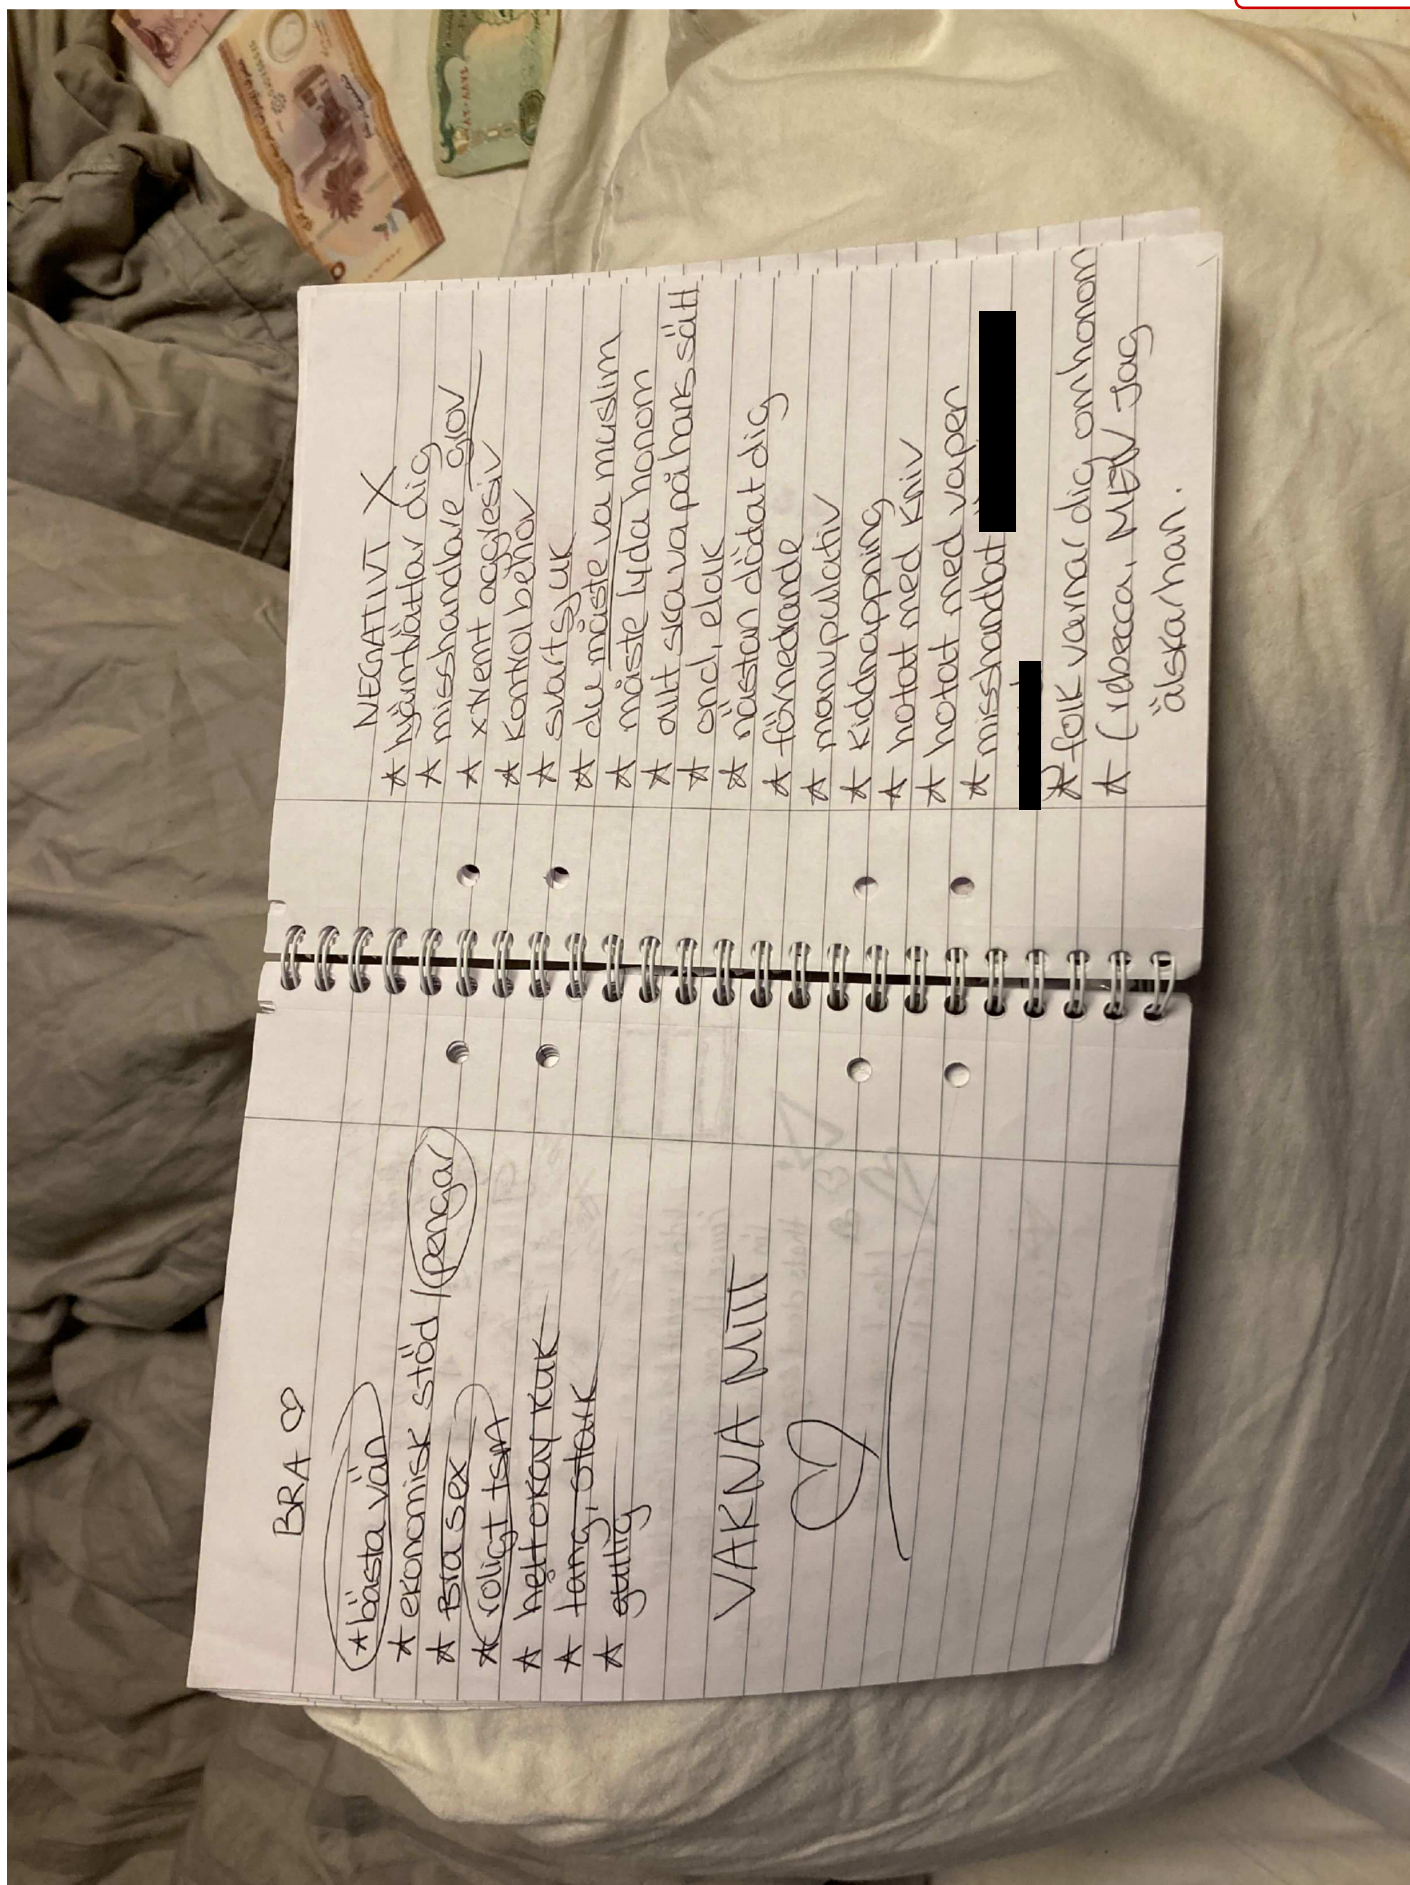 BRA ♡
☆ bästa vän
☆ ekonomisk stöd / pengar
☆ Bra sex
☆ roligt tsm
☆ helt okay kuk
☆ lång, stark
☆ gullig
VAKNA NU!!!
NEGATIVT X
☆ hjärntvättar dig
☆ misshandlare grov
☆ xtremt aggresiv
☆ kontrol behov
☆ svartsjuk
☆ du måste va muslim
☆ måste lyda honom
☆ allt ska va på hans sätt
☆ ond, elak
☆ nästan dödat dig
☆ förnedrande
☆ manupulativ
☆ kiddnappning
☆ hotat med kniv
☆ hotat med vapen
☆ misshandlat
☆ folk varnar dig om honom
☆ (rebecca, MEN Jag
älskar han.